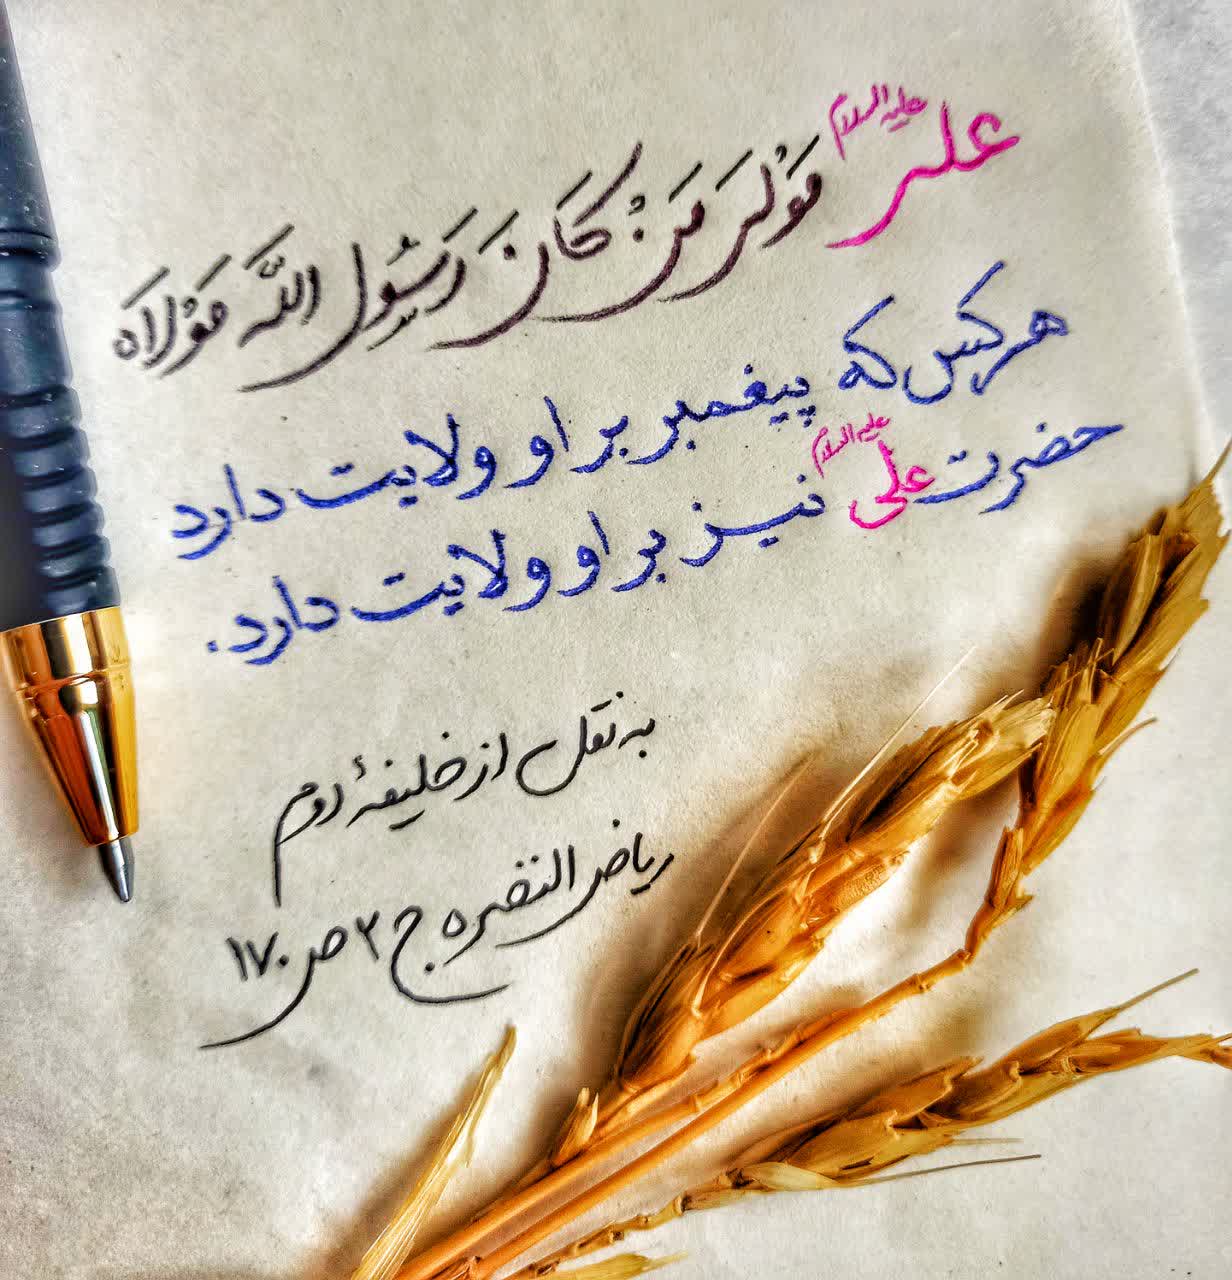 علی علیه السلام مَوْلَی مَنْ کَانَ رَسُول اللَّه مَوْلَاه
هرکس که پیغمبر بر او ولایت دارد
حضرت علی علیه السلام نیز بر او ولایت دارد.
به نقل از خلیفهٔ دوم
ریاض النضره ج ۳ ص ۱۷۰